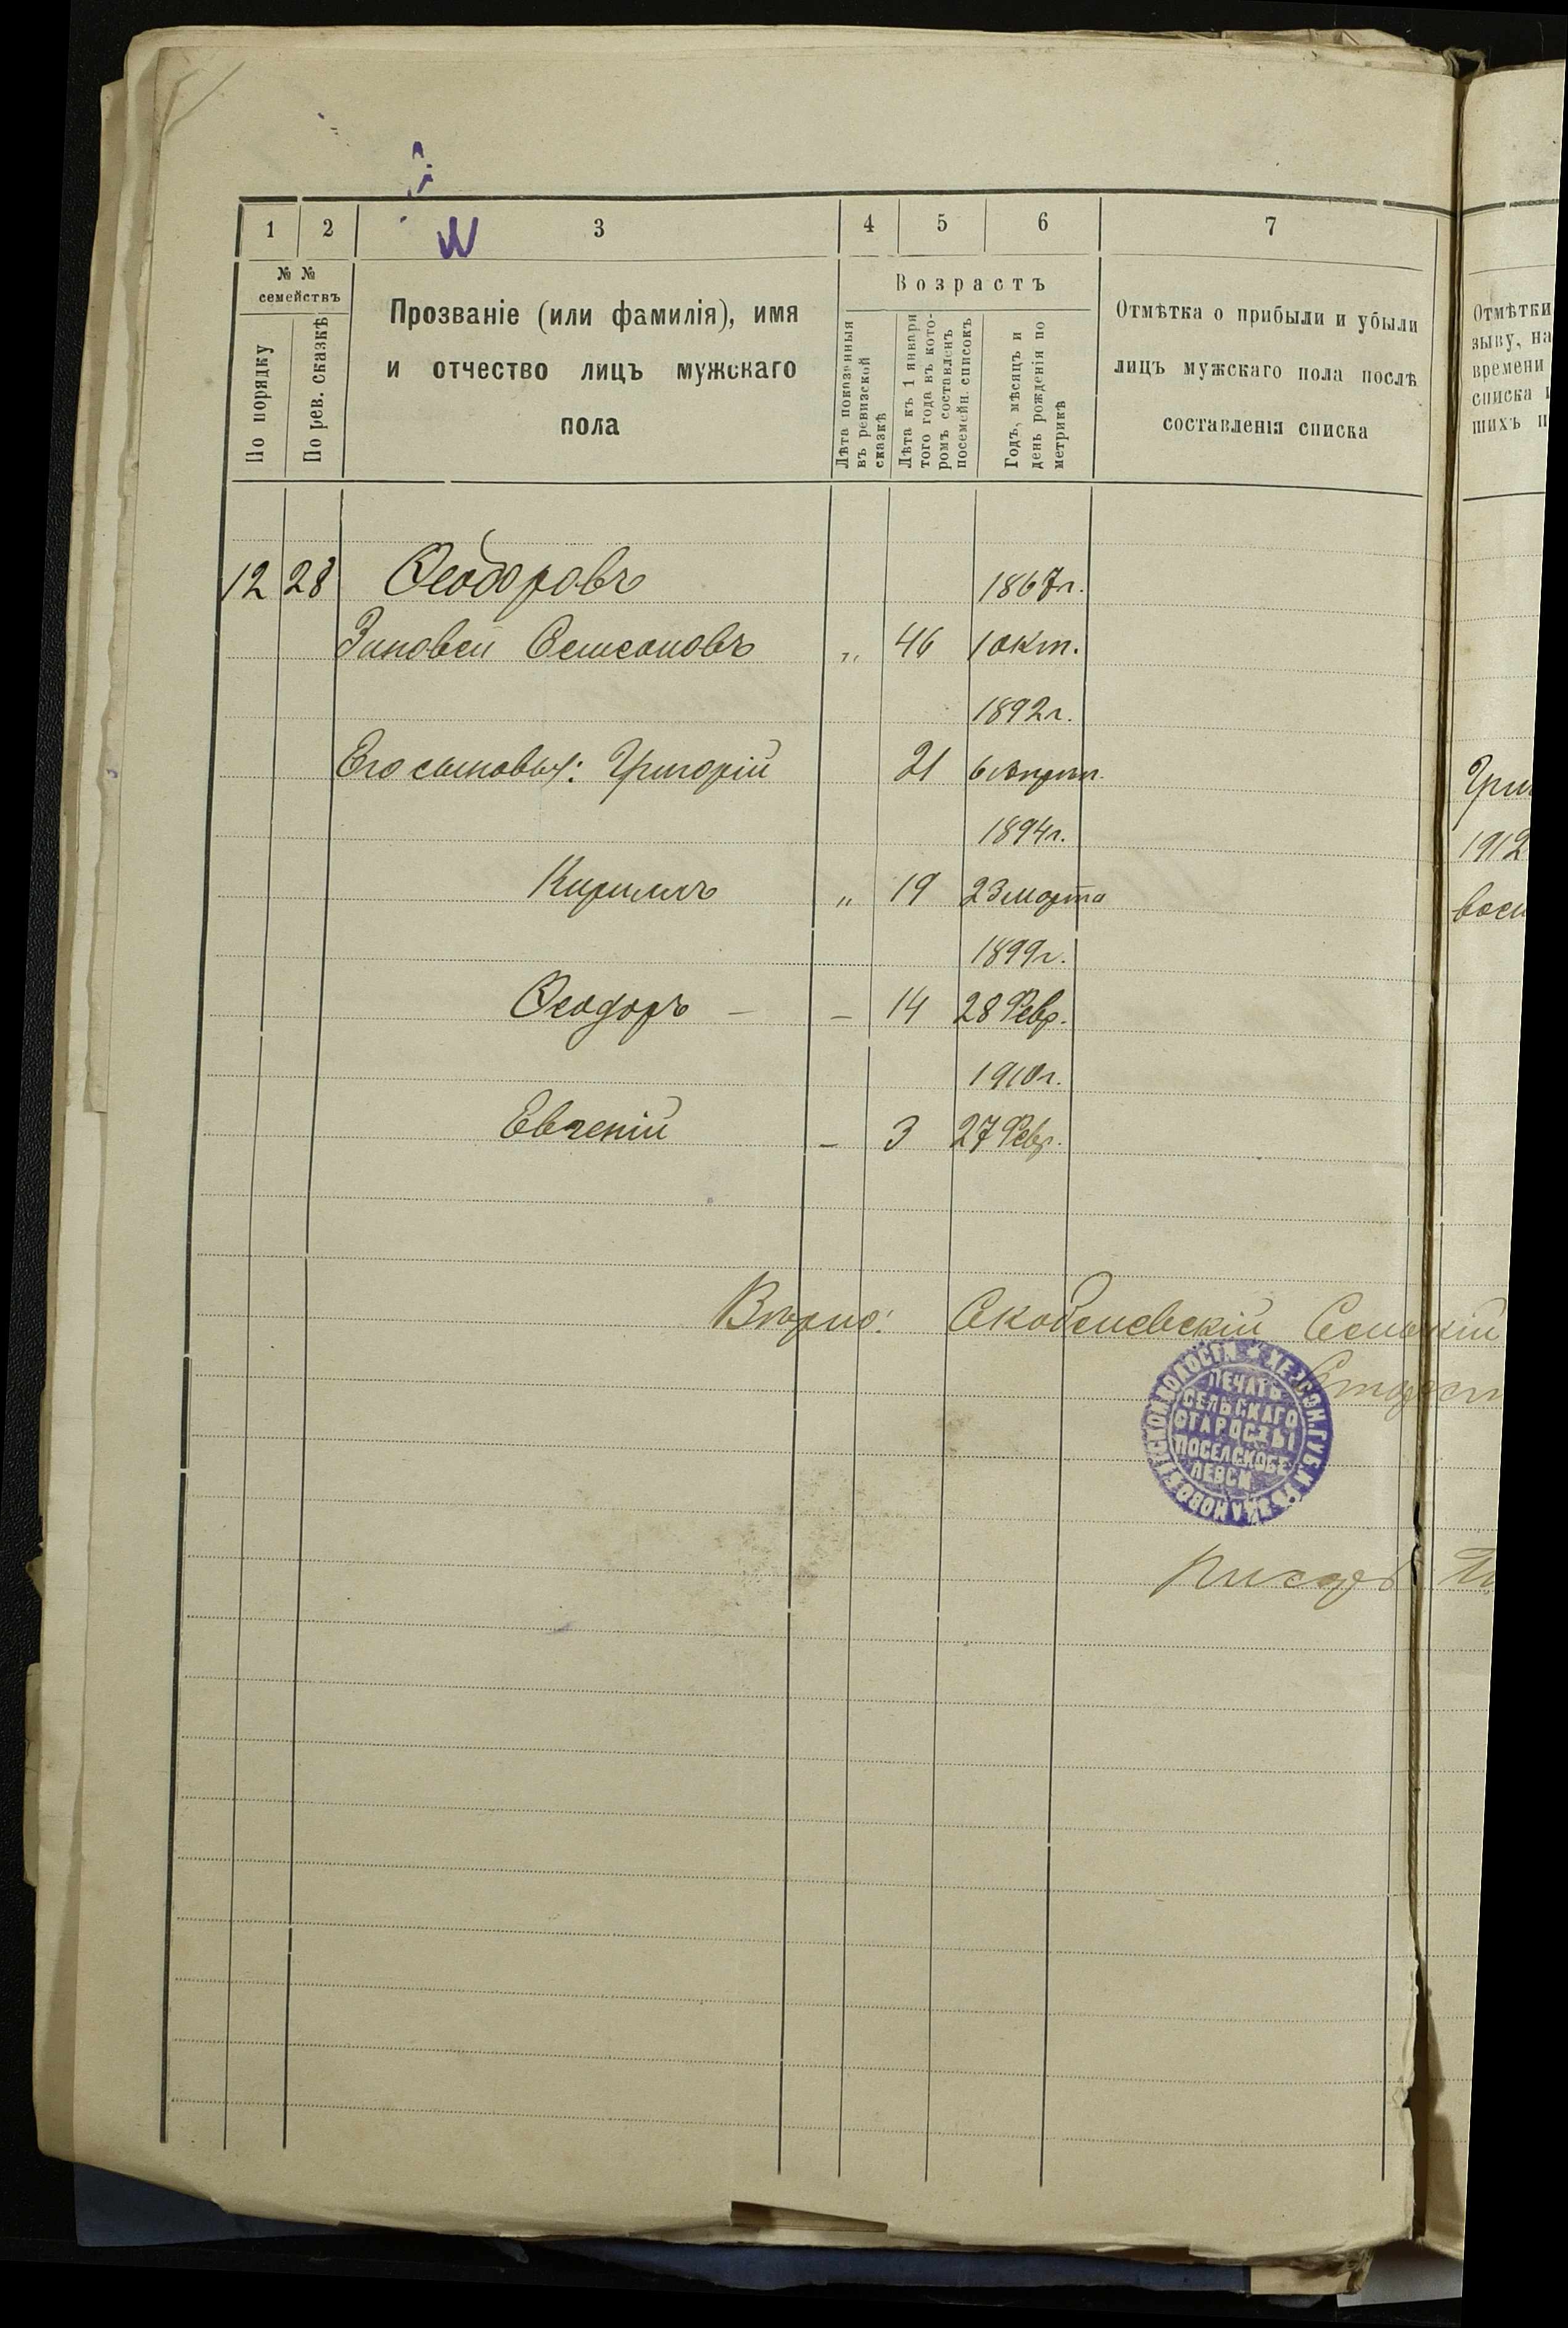 1 2 3 4 5 6 7
№ №
семействъ
По порядку
По рев. сказкѣ
Прозваніе (или фамилія), имя
и отчество лицъ мужскаго
пола
Возрастъ
Лѣта показанныя
въ ревизской
сказкѣ
Лѣта къ 1 января
того года въ кото-
ромъ составленъ
посемейн. списокъ
Годъ, мѣсяцъ и
день рожденія по
метрикѣ
Отмѣтка о прибыли и убыли
лицъ мужскаго пола послѣ
составленія списка
Отмѣтки
зыву, на
времени
списка
шихъ
12 28 Ѳеодоровъ 1867г.
Зиновей Самсоновъ „ 46 1 окт.
1892г.
Его сыновья: Григорій 21 6 Апрѣл.
1894г.
Кириллъ „ 19 23 марта
1899г.
Ѳеодоръ — — 14 28 Февр.
1910г.
Евгеній — 3 27 Февр.
Гри
1912
Вѣрно: Скобелевскій Сельскій
Старост
ПЕЧАТЬ
СЕЛЬСКАГО
СТАРОСТЫ
ПОСЕЛ. СКОБЕ
ЛЕВСК
ХЕРСОН. ГУБ. И УѢЗДА
Писарь